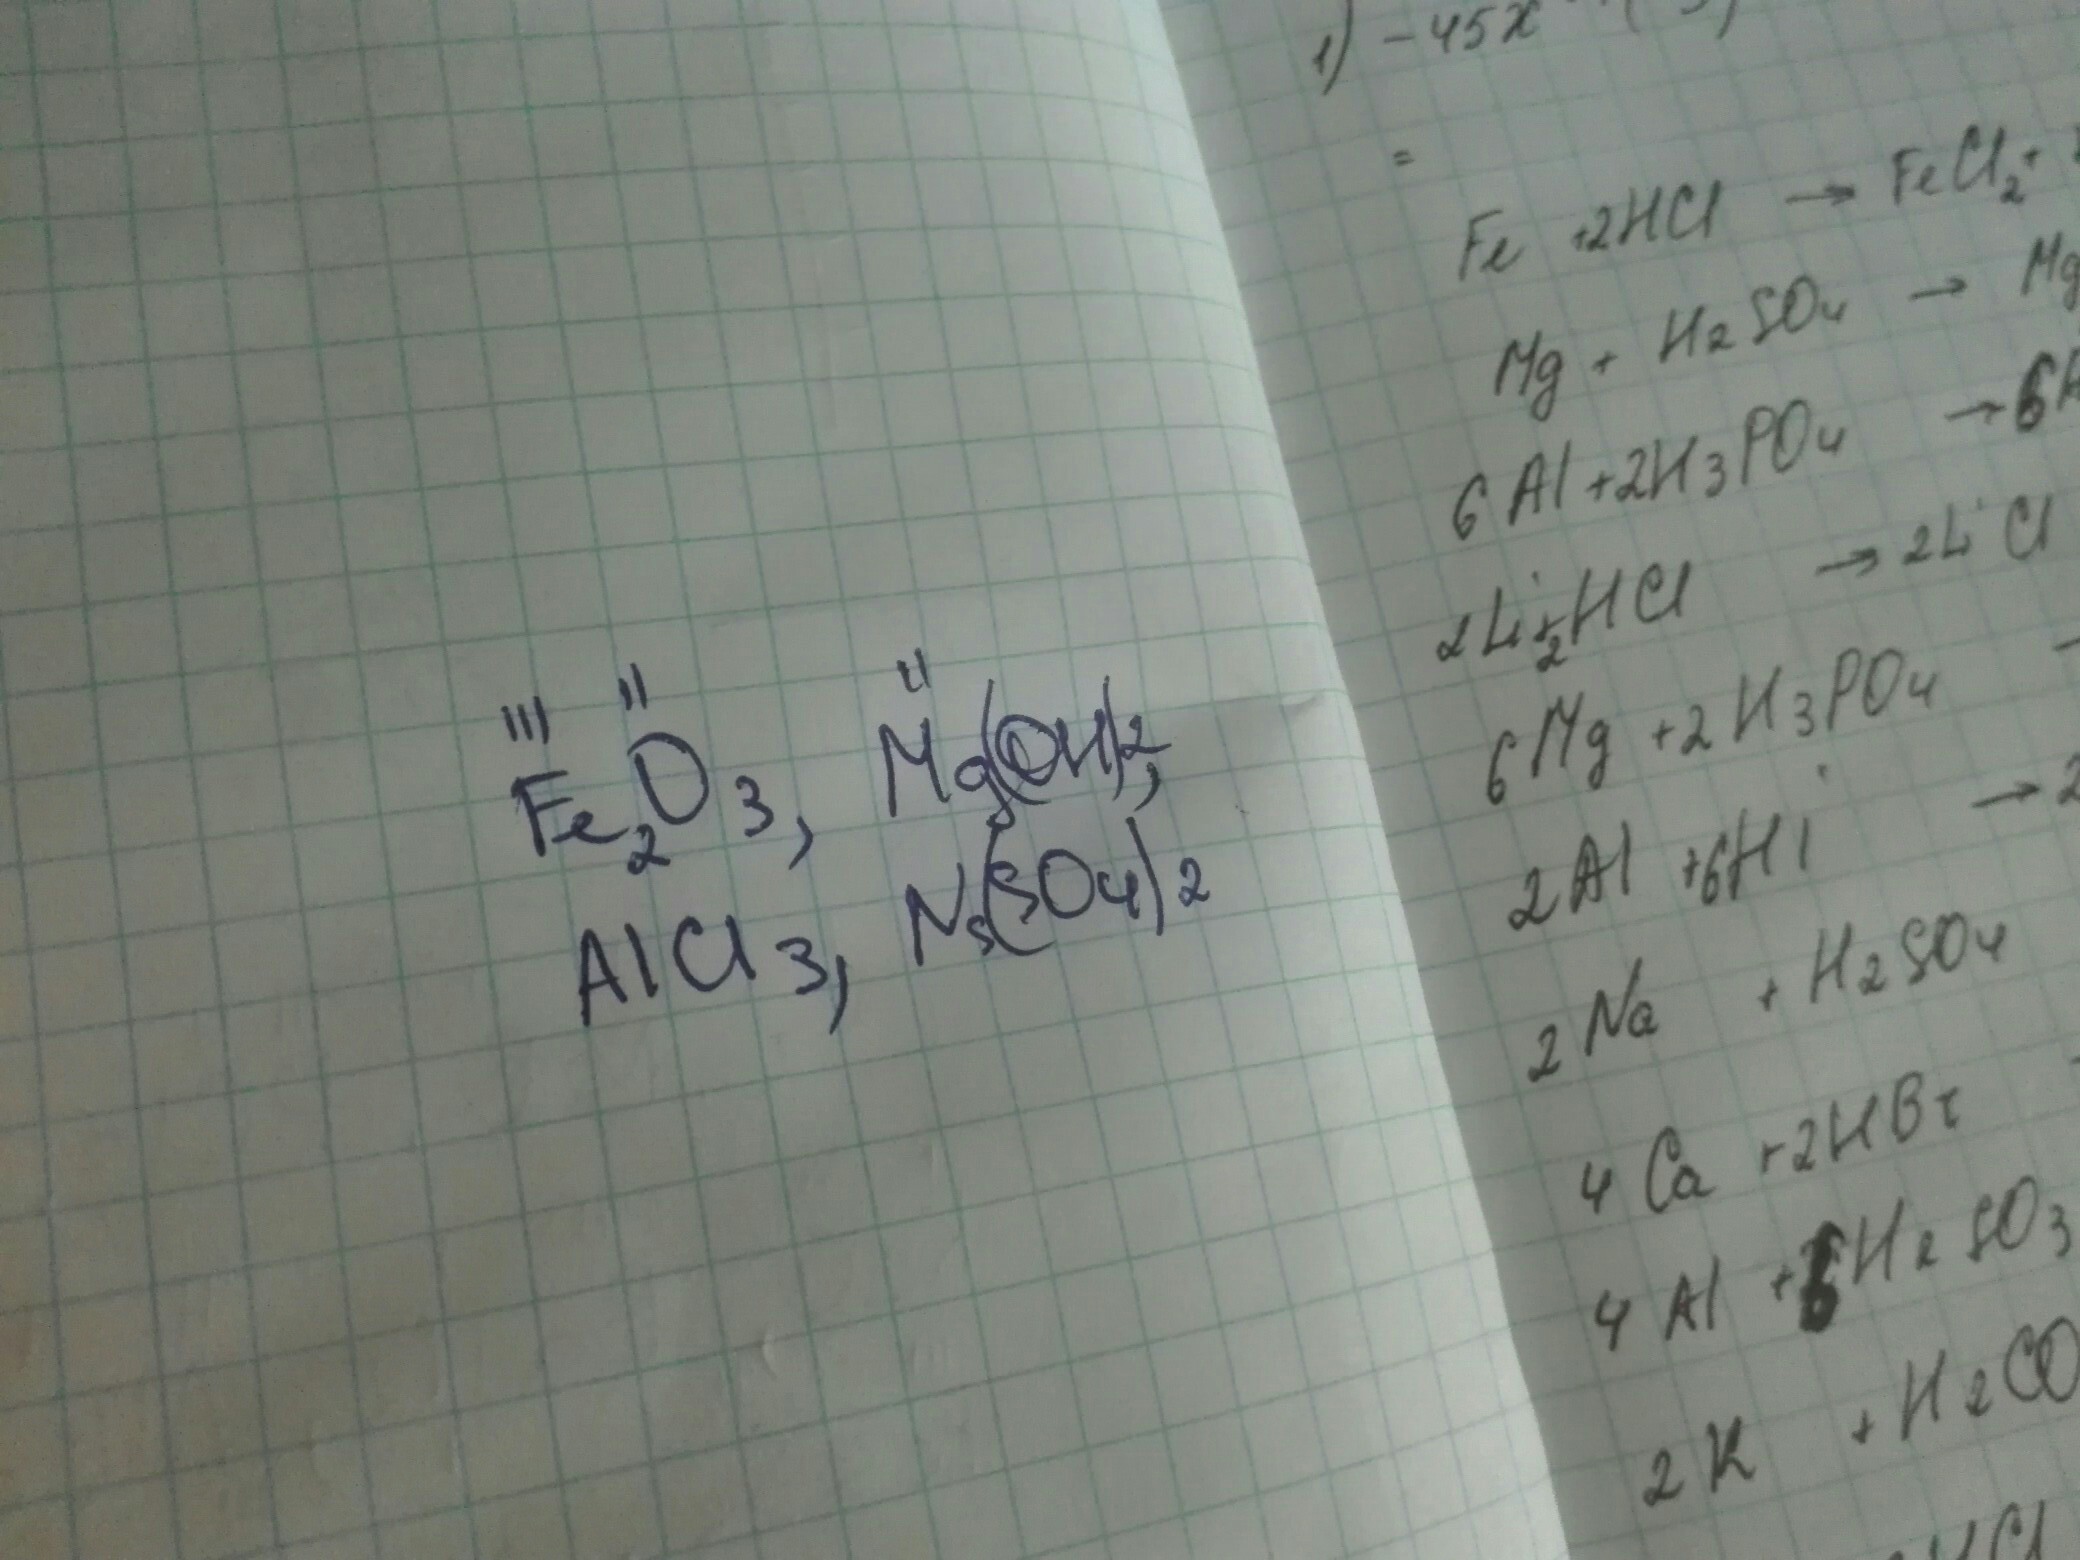 III II II
Fe2O3, Mg(OH)2,
AlCl3, Ns(SO4)2
1) -45x
=
Fe +2HCl → FeCl2+
Mg + H2SO4 → Mg
6Al+2H3PO4 → 6A
2Li+2HCl → 2LiCl
6Mg +2H3PO4
2Al +6Hi → 2
2Na + H2SO4
4Ca +2HBr
4Al +6H2SO3
2K + H2CO
HCl